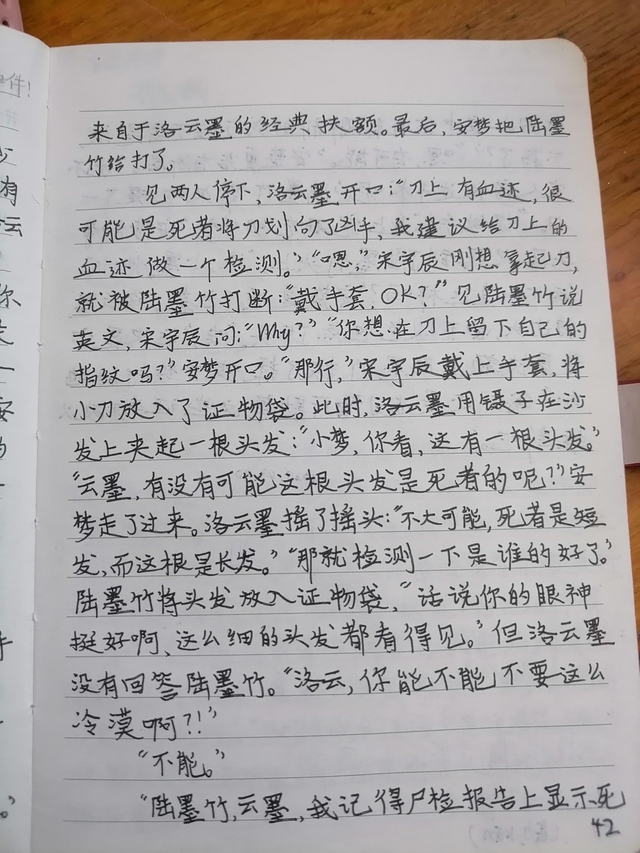 来自于洛云墨的经典扶额。最后，安梦把陆墨
竹给打了。
见两人停下，洛云墨开口：“刀上有血迹，很
可能是死者将刀划向了凶手，我建议给刀上的
血迹做一个检测。”“嗯，”宋宇辰刚想拿起刀，
就被陆墨竹打断：“戴手套，OK？”见陆墨竹说
英文，宋宇辰问：“Why？”“你想在刀上留下自己的
指纹吗？”安梦开口。“那行，”宋宇辰戴上手套，将
小刀放入了证物袋。此时，洛云墨用镊子在沙
发上夹起一根头发：“小梦，你看，这有一根头发。”
“云墨，有没有可能这根头发是死者的呢？”安
梦走了过来。洛云墨摇了摇头：“不大可能，死者是短
发，而这根是长发。”“那就检测一下是谁的好了。”
陆墨竹将头发放入证物袋，“话说你的眼神
挺好啊，这么细的头发都看得见。”但洛云墨
没有回答陆墨竹。“洛云，你能不能不要这么
冷漠啊？！”
“不能。”
“陆墨竹，云墨，我记得尸检报告上显示死
42
件！
有
云
你
一
安
的